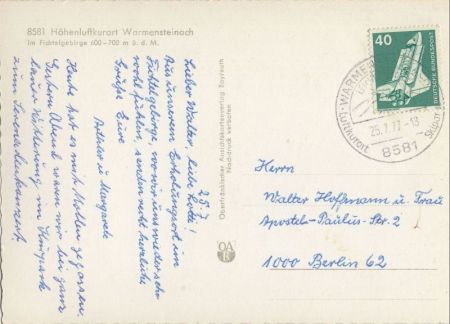 8581 Höhenluftkurort Warmensteinach
Im Fichtelgebirge 600–700 m ü. d. M.
25.7.
Lieber Walter, liebe Rita!
Aus unserem Erholungsort im
Fichtelgebirge, wo wir uns wieder sehr
wohl fühlen, senden recht herzliche
Grüße Eure
Adolar u. Margarete
Heute hat es mit Mollen gegossen.
Gestern Abend waren wir bei ganz
lauer Witterung im Kurpark
zum Serenadenkonzert.
Oberfränkischer Ansichtskartenverlag Bayreuth
Nachdruck verboten
OAB
40
DEUTSCHE BUNDESPOST
WARME
25.7.77-13
Luftkurort
8581
Walter Hoffmann u. Frau
Apostel-Paulus-Str. 2
1000 Berlin 62